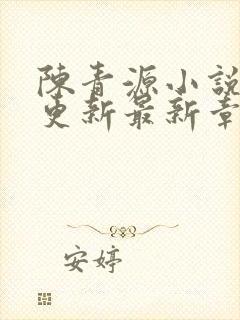 陳青源小說
更新最新章
安婷